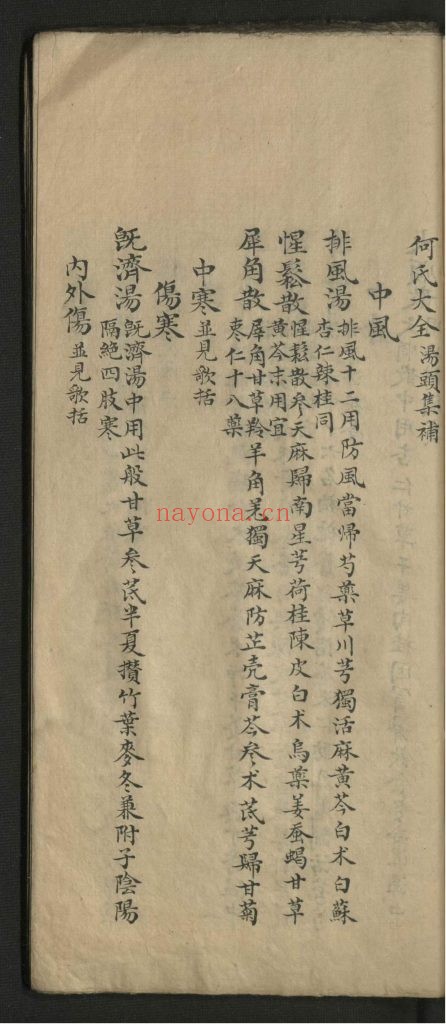 何氏大全 湯頭集補
中風
排風湯 排風十二用防風當歸芍藥草川芎獨活麻黃芩白术白蘇
杏仁辣桂同
惺鬆散 惺鬆散參天麻歸南星芎荷桂陳皮白术烏藥姜蚕蝎甘草
黃芩末用宜
犀角散 犀角甘草羚羊角羌獨天麻防芷壳膏芩參术芪芎歸甘菊
枣仁十八藥
中寒 並見歌括
傷寒
旣濟湯 旣濟湯中用此般甘草參芪半夏攢竹葉麥冬兼附子陰陽
隔絶四肢寒
內外傷 並見歌括
nayona.cn